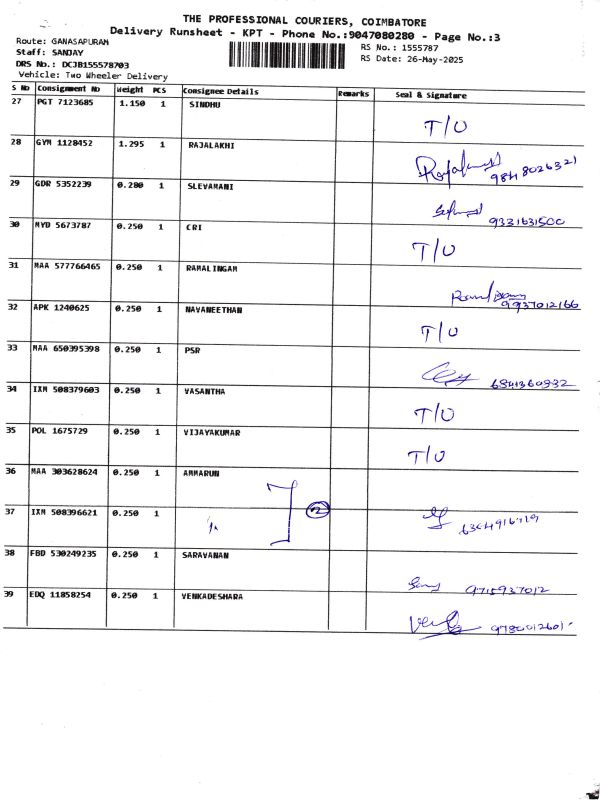 THE PROFESSIONAL COURIERS, COIMBATORE
Delivery Runsheet - KPT - Phone No.:9047080280 - Page No.:3
Route: GANASAPURAM
Staff: SANJAY
DRS No.: DCJB155578703
Vehicle: Two Wheeler Delivery
RS No.: 1555787
RS Date: 26-May-2025
S No Consignment No Weight PCS Consignee Details Remarks Seal & Signature
27 PGT 7123685 1.150 1 SINDHU T/U
28 GYM 1128452 1.295 1 RAJALAKHI 98418026321
29 GDR 5352239 0.280 1 SLEVAMANI 9331631500
30 MYD 5673787 0.250 1 CRI T/U
31 MAA 577766465 0.250 1 RAMALINGAM 9937012166
32 APK 1240625 0.250 1 NAVANEETHAN T/U
33 MAA 650395398 0.250 1 PSR 6841360932
34 IXM 508379603 0.250 1 VASANTHA T/U
35 POL 1675729 0.250 1 VIJAYAKUMAR T/U
36 MAA 303628624 0.250 1 AMMARUN
37 IXM 508396621 0.250 1 2 6364916719
38 FBD 530249235 0.250 1 SARAVANAN 9715937012
39 EDQ 11858254 0.250 1 VENKADESHARA 9780012601